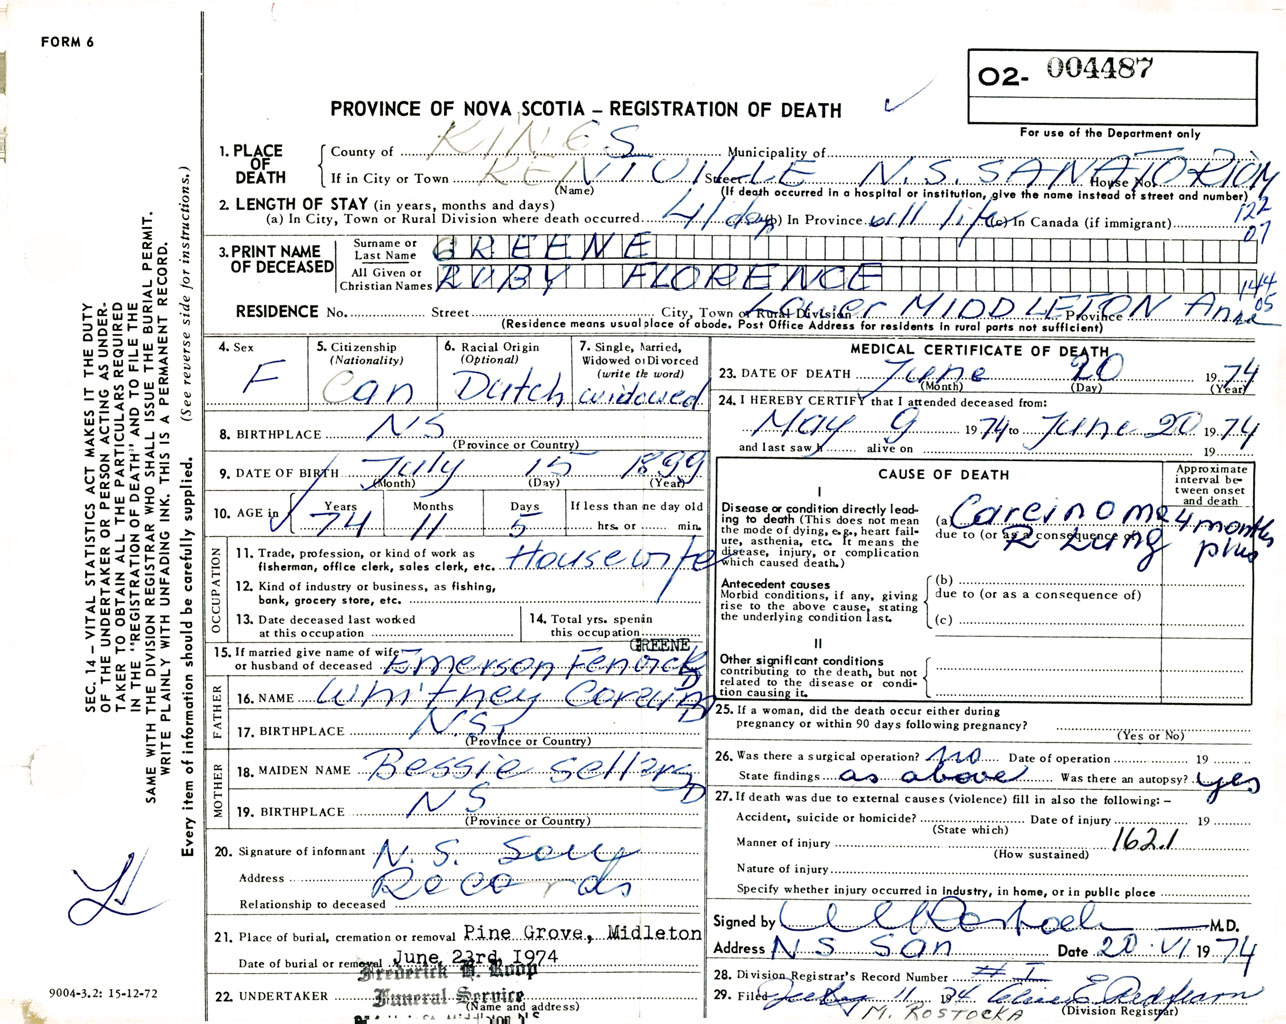 FORM 6
O2- 004487
For use of the Department only
PROVINCE OF NOVA SCOTIA – REGISTRATION OF DEATH
1. PLACE OF DEATH
County of KINGS Municipality of
If in City or Town KENTVILLE Street N.S. SANATORIUM House No.
(Name) (If death occurred in a hospital or institution, give the name instead of street and number)
2. LENGTH OF STAY (in years, months and days)
(a) In City, Town or Rural Division where death occurred 41 days (b) In Province all life (c) In Canada (if immigrant)
122
07
3. PRINT NAME OF DECEASED
Surname or Last Name GREENE
All Given or Christian Names RUBY FLORENCE
144
05
RESIDENCE No. Street City, Town or Rural Division Lower MIDDLETON Province Anna
(Residence means usual place of abode. Post Office Address for residents in rural parts not sufficient)
4. Sex F
5. Citizenship (Nationality) Can
6. Racial Origin (Optional) Dutch
7. Single, Married, Widowed or Divorced (write the word) widowed
8. BIRTHPLACE NS
(Province or Country)
9. DATE OF BIRTH July 15 1899
(Month) (Day) (Year)
10. AGE in Years 74 Months 11 Days 5 If less than one day old hrs. or min.
OCCUPATION
11. Trade, profession, or kind of work as fisherman, office clerk, sales clerk, etc. Housewife
12. Kind of industry or business, as fishing, bank, grocery store, etc.
13. Date deceased last worked at this occupation
14. Total yrs. spent in this occupation
GREENE
15. If married give name of wife or husband of deceased Emerson Fenwick D
FATHER
16. NAME Whitney Corkum D
17. BIRTHPLACE N.S.
(Province or Country)
MOTHER
18. MAIDEN NAME Bessie Sellars D
19. BIRTHPLACE NS
(Province or Country)
20. Signature of informant N.S. San
Address Records
Relationship to deceased
21. Place of burial, cremation or removal Pine Grove, Midleton
Date of burial or removal June 23rd 1974
22. UNDERTAKER Frederick H. Roop
Funeral Service
(Name and address)
MEDICAL CERTIFICATE OF DEATH
23. DATE OF DEATH June 20 1974
(Month) (Day) (Year)
24. I HEREBY CERTIFY that I attended deceased from:
May 9 1974 to June 20 1974
and last saw h alive on 19
CAUSE OF DEATH
Approximate interval between onset and death
I
Disease or condition directly leading to death (This does not mean the mode of dying, e.g., heart failure, asthenia, etc. It means the disease, injury, or complication which caused death.)
(a) Carcinoma R Lung 4 months plus
due to (or as a consequence of)
Antecedent causes
Morbid conditions, if any, giving rise to the above cause, stating the underlying condition last.
(b)
due to (or as a consequence of)
(c)
II
Other significant conditions contributing to the death, but not related to the disease or condition causing it.
25. If a woman, did the death occur either during pregnancy or within 90 days following pregnancy?
(Yes or No)
26. Was there a surgical operation? no Date of operation 19
State findings as above Was there an autopsy? yes
27. If death was due to external causes (violence) fill in also the following: –
Accident, suicide or homicide? Date of injury 19
(State which)
Manner of injury 162.1
(How sustained)
Nature of injury
Specify whether injury occurred in industry, in home, or in public place
Signed by M.D.
Address NS San Date 20 VI 1974
28. Division Registrar's Record Number # 1
29. Filed 11 1974
(Division Registrar)
M. ROSTOCKA
SEC. 14 – VITAL STATISTICS ACT MAKES IT THE DUTY
OF THE UNDERTAKER OR PERSON ACTING AS UNDER-
TAKER TO OBTAIN ALL THE PARTICULARS REQUIRED
IN THE "REGISTRATION OF DEATH" AND TO FILE THE
SAME WITH THE DIVISION REGISTRAR WHO SHALL ISSUE THE BURIAL PERMIT.
WRITE PLAINLY WITH UNFADING INK. THIS IS A PERMANENT RECORD.
Every item of information should be carefully supplied. (See reverse side for instructions.)
9004-3.2: 15-12-72